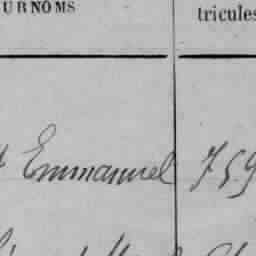 URNOMS
tricules
Emmanuel 759